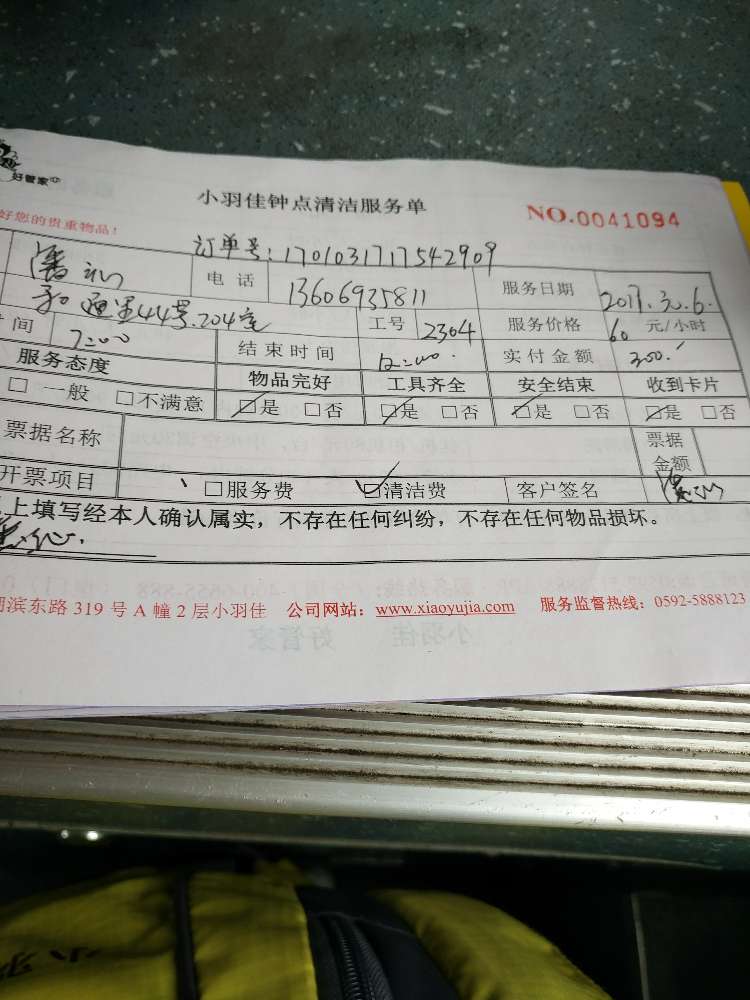 好管家
小羽佳钟点清洁服务单 NO.0041094
好您的贵重物品！
订单号：1701031717542909
潘 电话 13606935811 服务日期 2017.30.6.
44号.204室 工号 2304 服务价格 60 元/小时
时间 7:00 结束时间 12:00. 实付金额 300.
服务态度 物品完好 工具齐全 安全结束 收到卡片
□一般 □不满意 □是 □否 □是 □否 □是 □否 □是 □否
票据名称 票据金额
开票项目 □服务费 □清洁费 客户签名 潘
上填写经本人确认属实，不存在任何纠纷，不存在任何物品损坏。
湖滨东路 319 号 A 幢 2 层小羽佳 公司网站：www.xiaoyujia.com 服务监督热线：0592-5888123